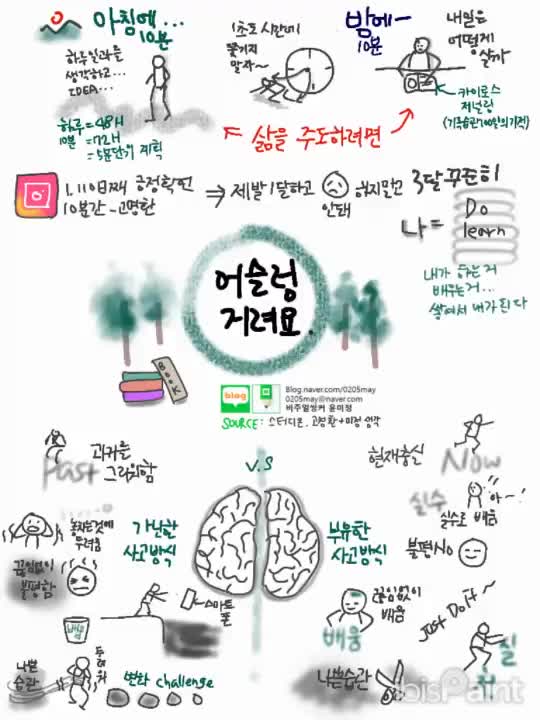 아침에...
10분
하루일과를
생각하고...
IDEA...
하루 = 48H
10분 = 72H
= 5분단위 계획
1초도 시간에
쫓기지
말자~
밤에~
10분
내일은
어떻게
살까
카이로스
저널링
(기록습관 100일의 기적)
삶을 주도하려면
1,110일째 긍정확언
10분간 - 고명환
⇒ 제발 1달하고
안돼
하지말고
3달 꾸준히
나 =
Do
learn
내가 하는거
배우는거...
쌓여서 내가 된다
어슬렁
거려요.
BOOK
blog
Blog.naver.com/0205may
0205may@naver.com
비주얼씽커 윤미정
SOURCE: 스터디언, 고명환+미정 생각
V.S
과거를
그리워함
Past
현재충실
Now
놓치는것에
두려움
가난한
사고방식
끊임없이
불평함
스마트
폰
배움
나쁜
습관
두려워
변화 challenge
실수
아~!
실수로 배움
부유한
사고방식
불평 No
끊임없이
배움
배움
Just Do it ~
실
나쁜습관
ibisPaint